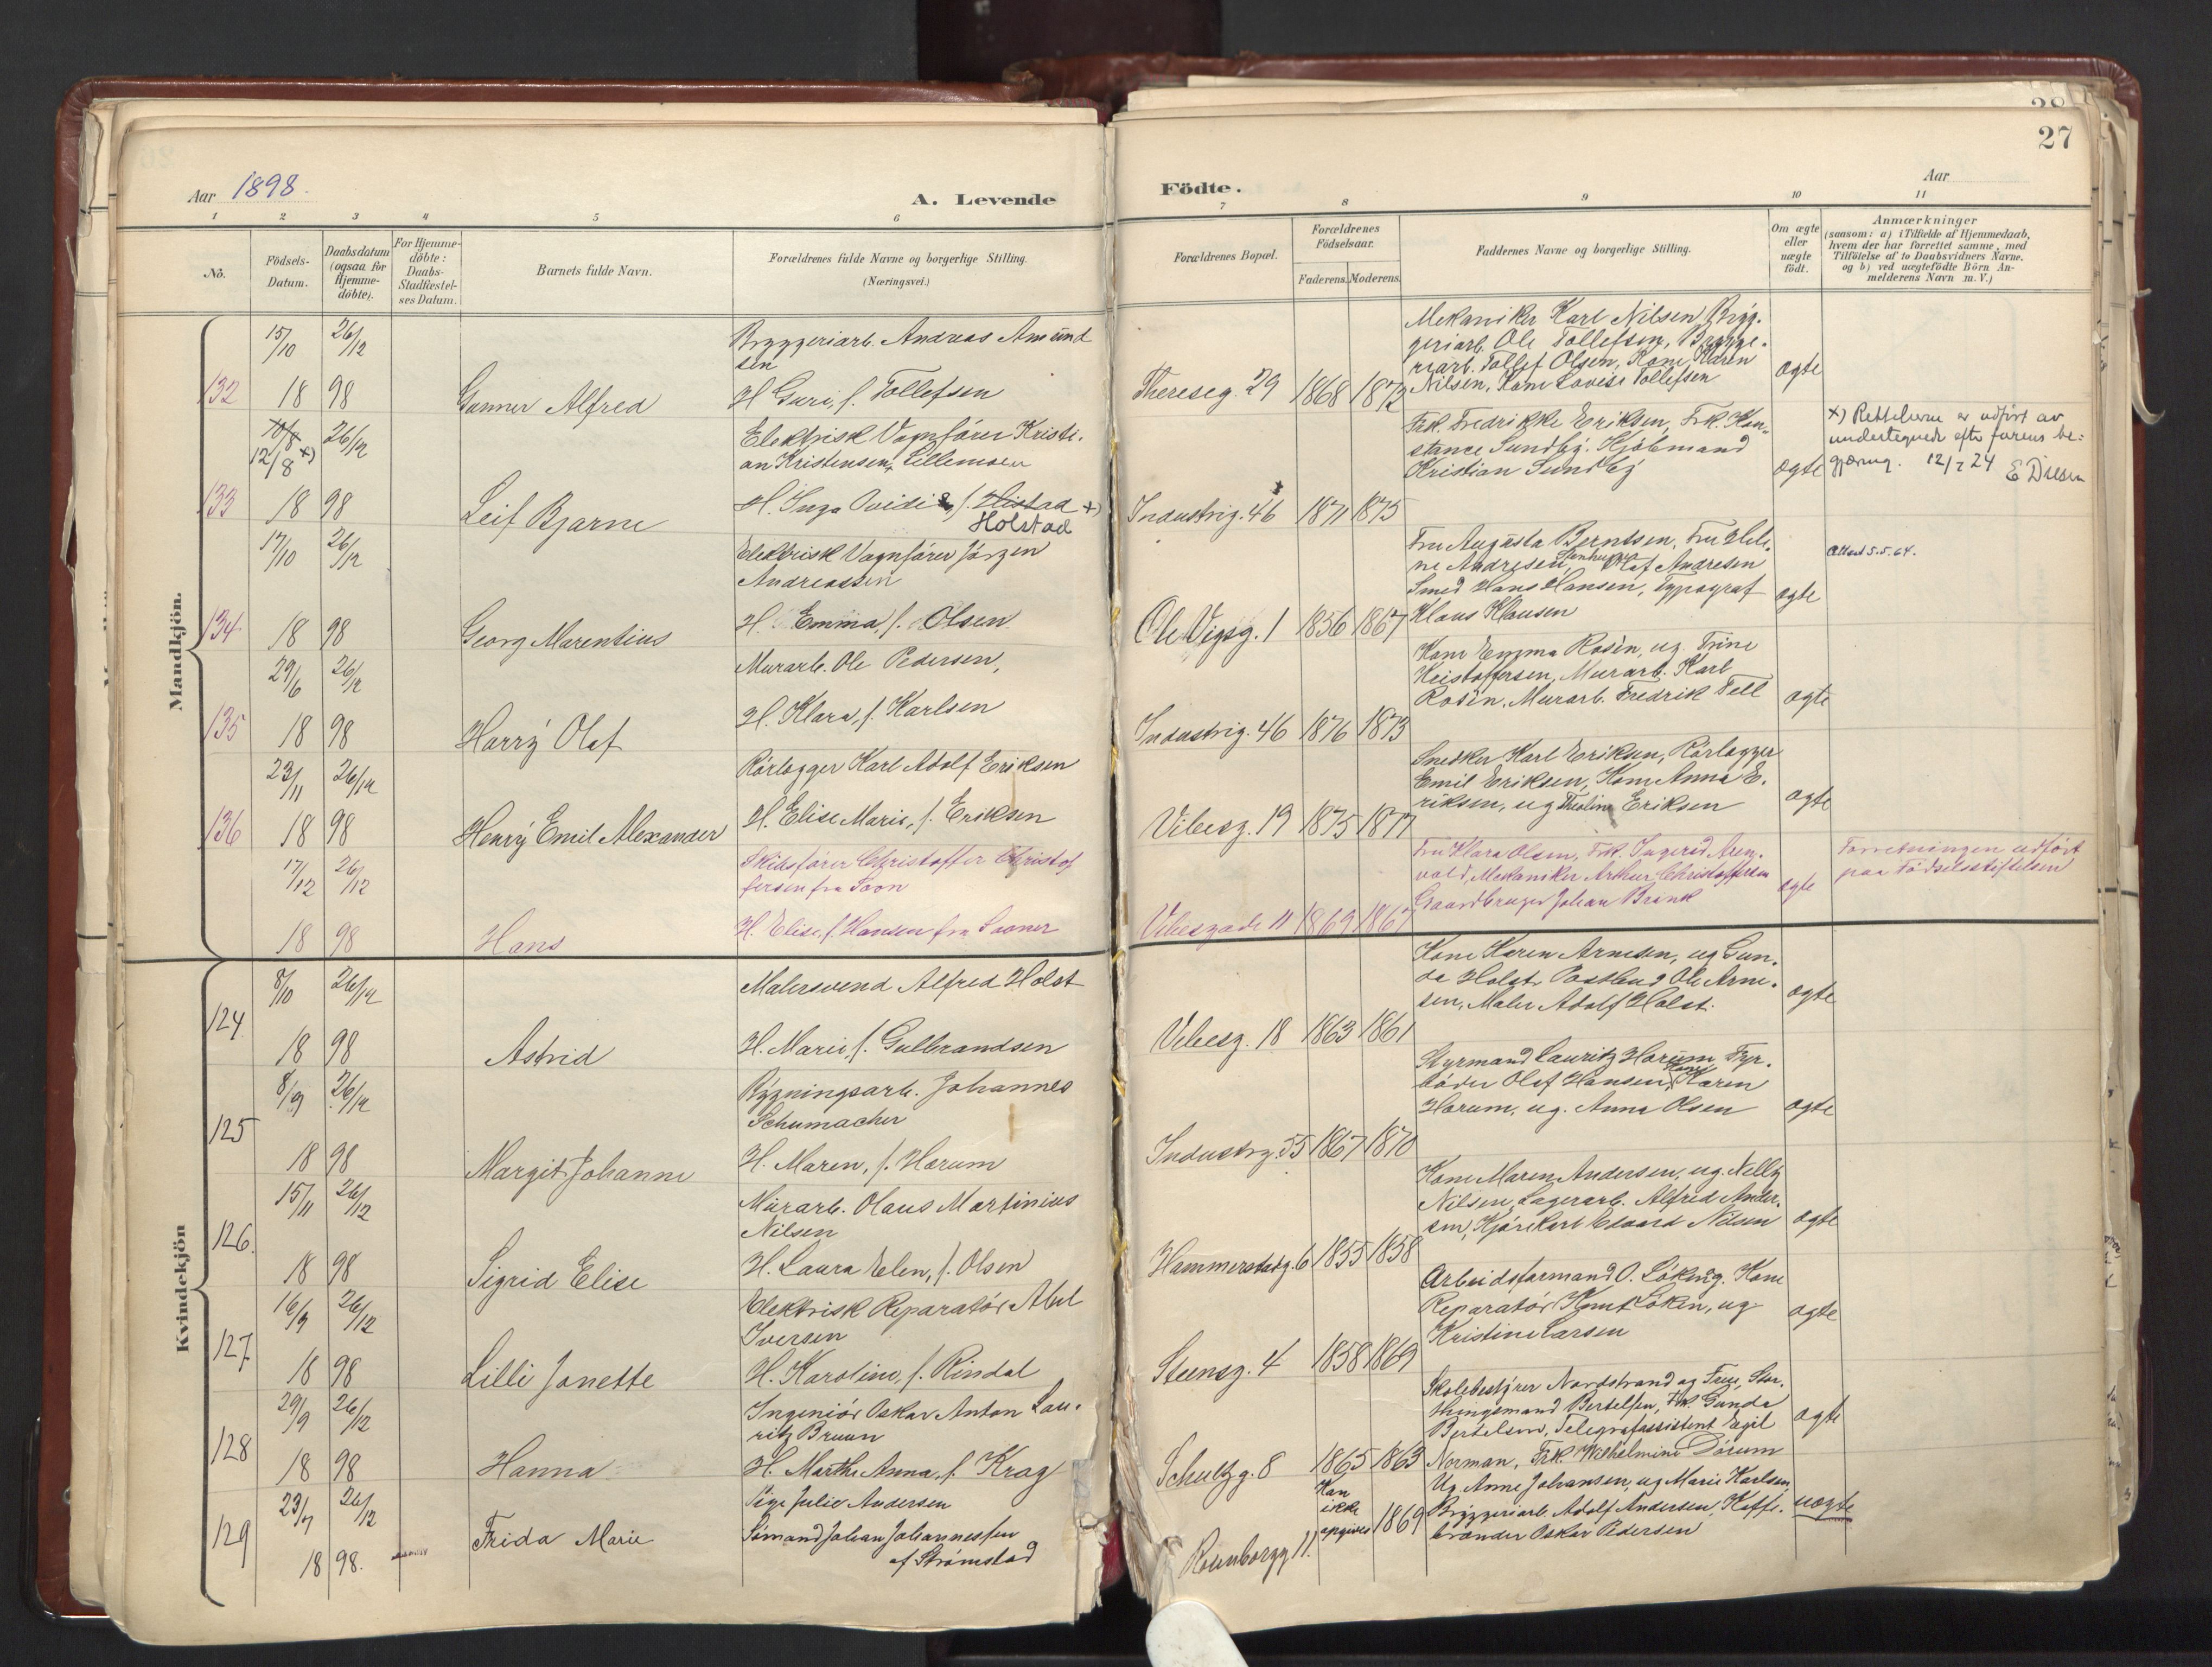 28
27
Aar 1898.
A. Levende
Födte.
Aar
1 2 3 4 5 6 7 8 9 10 11
No.
Födsels-
Datum.
Daabsdatum
(ogsaa for
Hjemme-
döbte).
For Hjemme-
döbte:
Daabs-
Stadfæstel-
ses Datum.
Barnets fulde Navn.
Forældrenes fulde Navne og borgerlige Stilling.
(Næringsvei.)
Forældrenes Bopæl.
Forældrenes
Födselsaar.
Faderens. Moderens.
Faddernes Navne og borgerlige Stilling.
Om ægte
eller
uægte
födt.
Anmærkninger
(saasom: a) i Tilfælde af Hjemmedaab,
hvem der har forrettet samme, med
Tilföielse af to Daabsvidners Navne.
og b) ved uægtefödte Börn An-
melderens Navn m.V.)
Mandkjön.
132
15/10 18
26/12 98
Gunnar Alfred
Bryggeriarb. Andreas Amund
sen
H Guri, f. Tollefsen
Thereseg. 29
1868 1872
Mekaniker Karl Nilsen Bryg-
geriarb. Ole Tollefsen, Brygge-
riarb. Tollef Olsen, Kone Karen
Nilsen, Kone Lovise Tollefsen
ægte
133
10/8
12/8 x)
18
26/12 98
Leif Bjarne
Elektrisk Vognfører Kristi-
an Kristensen, Lillemoen
H. Inga Ovidia, f. Histad x)
Holstad
Industrig. 46
1871 1875
Frk. Fredrikke Eriksen, Frk. Kon-
stance Sundby. Kjøbmand
Kristian Sundby
ægte
x) Rettelserne er utført av
undertegnede efter farens be-
gjæring. 12/7 24
134
17/10 18
26/12 98
Georg Marentius
Elektrisk Vognfører Jörgen
Andreassen
H. Emma, f. Olsen
Ole Vigsg. 1
1856 1867
Fru Augusta Berntsen, Fru Heli-
ne Andresen, Stenhugger Olaf Andresen
Smed Hans Hansen, Typograf
Klaus Klausen
ægte
Attest 5.5.64.
135
29/6 18
26/12 98
Harry Olaf
Murarb. Ole Pedersen,
H. Klara, f. Karlsen
Industrig. 46
1876 1873
Kone Emma Rosèn, ug. Trine
Kristoffersen, Murarb. Karl
Rosèn, Murarb. Fredrik Fell
ægte
136
23/11 18
26/12 98
Henry Emil Alexander
Rörlægger Karl Adolf Eriksen
H. Elise Marie, f. Eriksen
Vibesg. 19
1875 1877
Snedker Karl Eriksen, Rörlægger
Emil Eriksen, Kone Anna E-
riksen, ug Eriksen
ægte
17/12 18
26/12 98
Hans
Skibsfører Christoffer Christof
fersen fra Soon
H. Elise f. Hansen fra Sooner
Vibesgade 11
1869 1867
Fru Klara Olsen, Frk. Ingerid Aren-
vold, Mekaniker Arthur Christoffersen
Gaardbruger Johan Brink
ægte
Forretningen udført
paa Födselsstiftelsen
Kvindekjön
124
8/10 18
26/12 98
Astrid
Malersvend Alfred Holst
H. Marie, f. Gulbrandsen
Vibesg. 18
1863 1861
Kone Karen Arnesen, ug Gun-
da Holst, Postbud Ole Arne-
sen, Maler Adolf Holst.
ægte
125
8/9 18
26/12 98
Margit Johanne
Bygningsarb. Johannes
Schumacher
H. Maren, f. Horum
Industrig. 55
1867 1870
Styrmand Lauritz Horum, Fyr-
böder Olaf Hansen, Kone Karen
Horum, ug. Anna Olsen
ægte
126.
15/11 18
26/12 98
Sigrid Elise
Murarb. Olaus Martinius
Nilsen
H. Laura Elen, f. Olsen
Hammerstadg. 6
1855 1858
Kone Maren Andersen, ug. Nelly
Nilsen, Lagerarb. Alfred Ander-
sen, Kjörekarl Edvard Nilsen
ægte
127
16/9 18
26/12 98
Lilli Janette
Elektrisk Reparatör Abel
Iversen
H. Karoline, f. Rindal
Steensg. 4
1858 1869
Arbeidsformand O. Löken og Kone
Reparatör Knut Löken, ug
Kristine Larsen
ægte
128
29/9 18
26/12 98
Hanna
Ingeniör Oskar Anton Lau-
ritz Bruun
H. Marthe Anna, f. Krag
Schultzg. 8
1865 1863
Skolebestyrer Nordstrand og Frue, Stor-
thingsmand Bertelsen, Frk. Gunda
Bertelsen, Telegrafassistent Egil
Norman, Frk. Wilhelmine Dörum
ægte
129
23/7 18
26/12 98.
Frida Marie
Pige Julie Andersen
Sömand Johan Johannessen
af Strömstad
Rosenborgg 11.
Kan
ikke
opgives
1869
Ug Anne Johansen, ug Marie Karlsen,
Bryggeriarb. Adolf Andersen, Kaffe-
brænder Oskar Pedersen
uægte